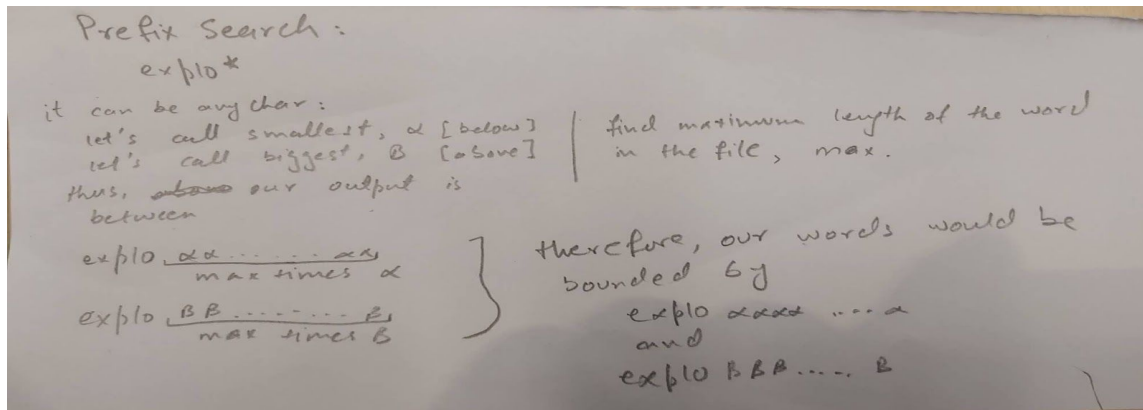 Prefix Search :
explo*
it can be any char :
let's call smallest, α [below]
let's call biggest, B [above]
thus, our output is
between
explo αα......αα
max times α
explo BB........B
max times B
find maximum length of the word
in the file, max.
therefore, our words would be
bounded by
explo αααα ....α
and
explo BBB..... B